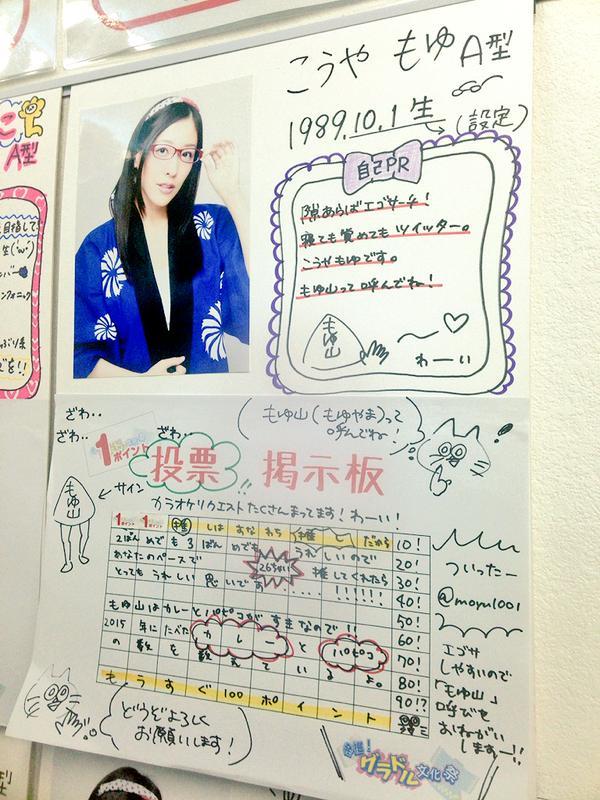 こうや もゆ A型
1989.10.1生
(設定)
自己PR
隙あらばエゴサーチ!
寝ても覚めてもツイッター。
こうやもゆです。
もゆ山って呼んでね!
もゆ山
わーい
A型
ざわ‥
ざわ‥
ざわ‥
もゆ山(もゆやま)って
呼んでね!
1
ポイント
投票!! 掲示板
もゆ山
サイン
カラオケリクエストたくさんまってます!わーい!
1ポイント 1ポイント 推しはあなわち推しだから 10!
2ばんめでも3ばんめでもうれしいので 20!
あなたのペースで 26ちゃい 推してくれたら 30!
とってもうれしい思いです......!!!!!! 40!
50!
もゆ山はカレーとパピコがすきなので!! 60!
2015年にたべたカレーとパピコ 70!
の数を数えているよ。 80!
もうすぐ100ポイント 90!?
ついったー
@moyu1001
エゴサ
しやすいので
「もゆ山」
呼びを
おねがい
しますー!!
どうぞよろしく
お願いします!
グラドル文化祭
A型